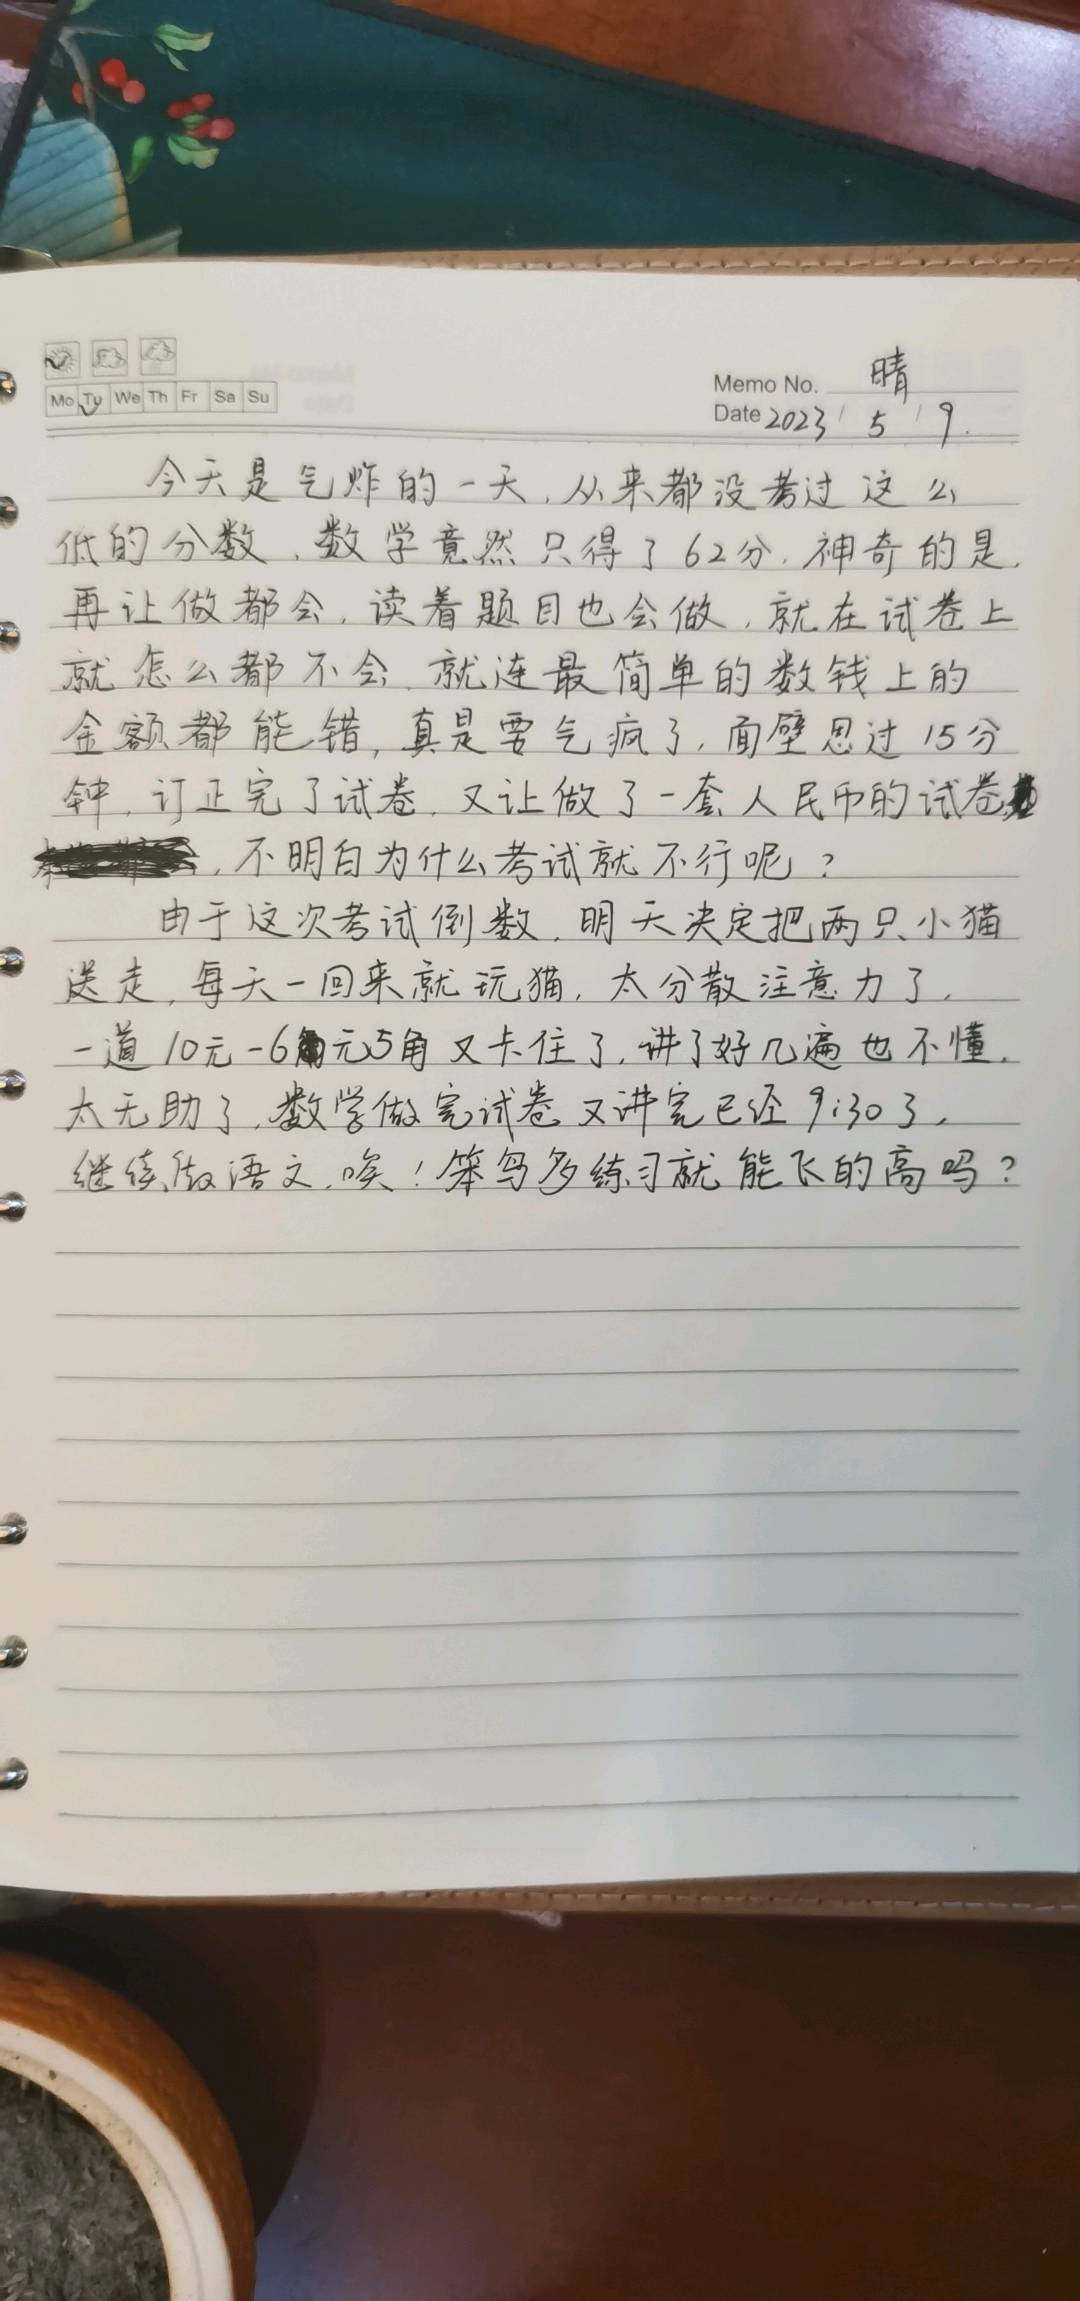 Memo No. 晴
Mo Tu We Th Fr Sa Su
Date 2023 / 5 / 9.
今天是气炸的一天,从来都没考过这么
低的分数,数学竟然只得了62分,神奇的是,
再让做都会,读着题目也会做,就在试卷上
就怎么都不会,就连最简单的数钱上的
金额都能错,真是要气疯了,面壁思过15分
钟,订正完了试卷,又让做了一套人民币的试卷
,不明白为什么考试就不行呢?
由于这次考试倒数,明天决定把两只小猫
送走,每天一回来就玩猫,太分散注意力了,
一道10元-6元5角又卡住了,讲了好几遍也不懂,
太无助了,数学做完试卷又讲完已经9:30了,
继续做语文,唉!笨鸟多练习就能飞的高吗?